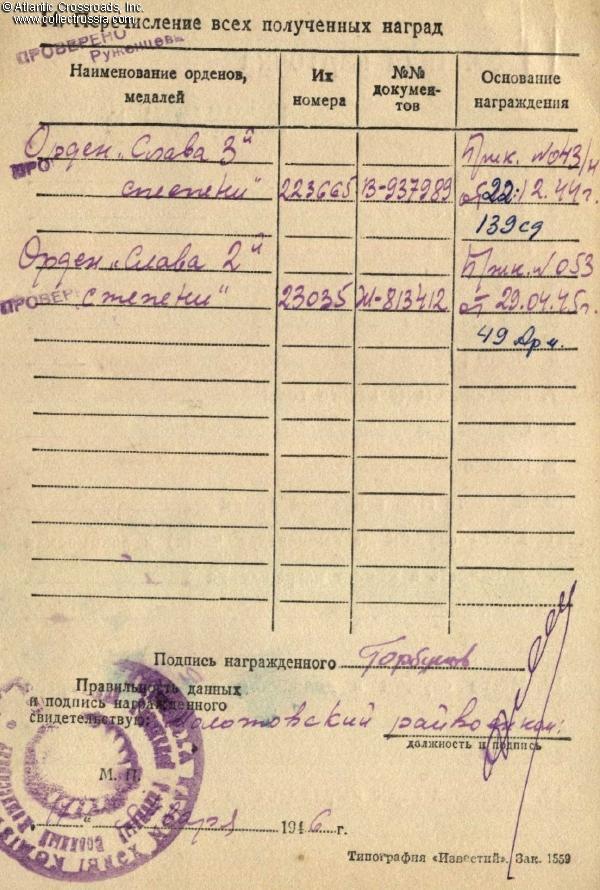 © Atlantic Crossroads, Inc.
www.collectrussia.com
Перечисление всех полученных наград
ПРОВЕРЕНО
Руженцева
Наименование орденов, медалей
Их номера
№№ документов
Основание награждения
Орден „Слава 3й
Прик. №043/н
ПРО
степени" 223665 В-937989 от 22.12.44г.
139сд
Орден „Слава 2й
Прик. № 053
ПРОВЕР
степени" 23035 Ж-813412 от 29.04.45г.
49 Арм.
Подпись награжденного Горбунов
Правильность данных
и подпись награжденного
свидетельствую:
должность и подпись
М. П.
1946 г.
Типография «Известий». Зак. 1559